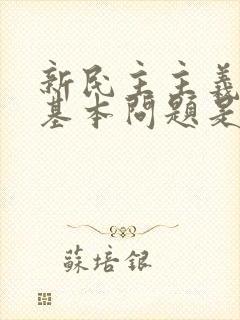 新民主主義
基本問題是
蘇培銀